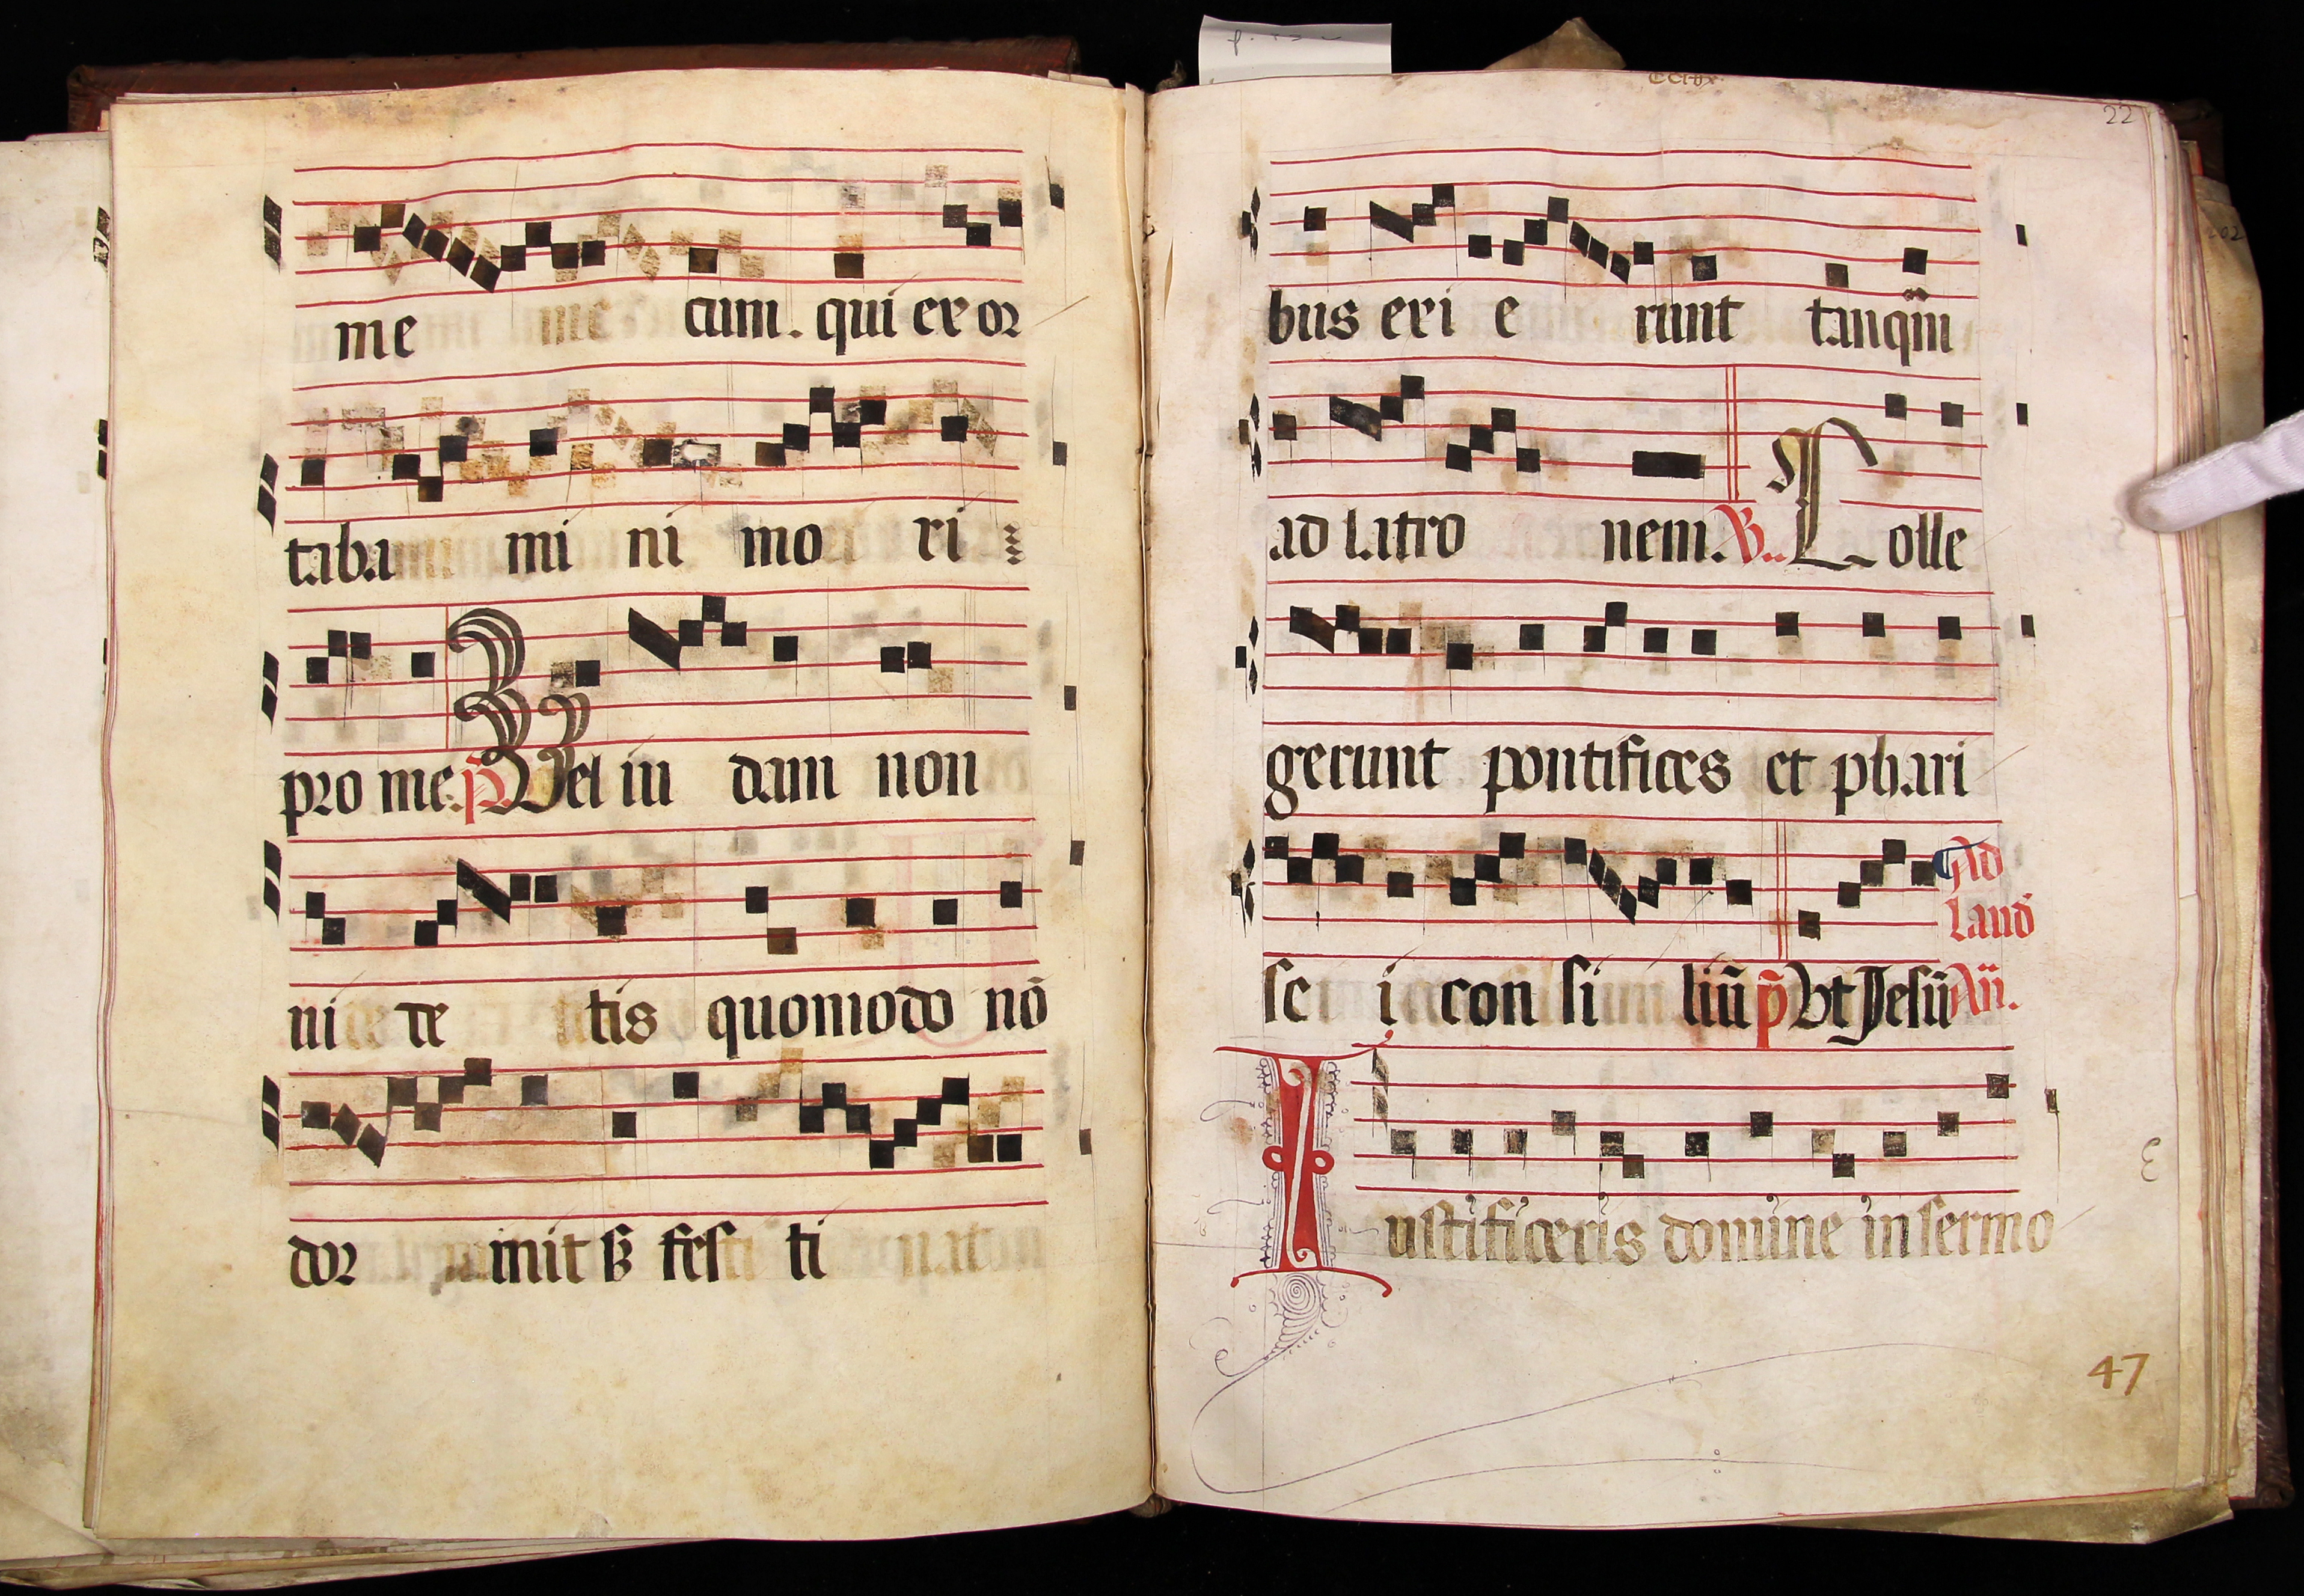 me cum. qui exor
taba mi ni mo ri
pro me. p̃. Vel iu dam non
ni de te tis quomodo nõ
dor mit sʒ fes ti
22
bus exi e runt tanqm̃
ad latro nem. V. Colle
gerunt pontifices et phari
Ad
laud
se i con si liũ p̃ Vt Jesũ Añ.
Iustificeris domine in sermo
47